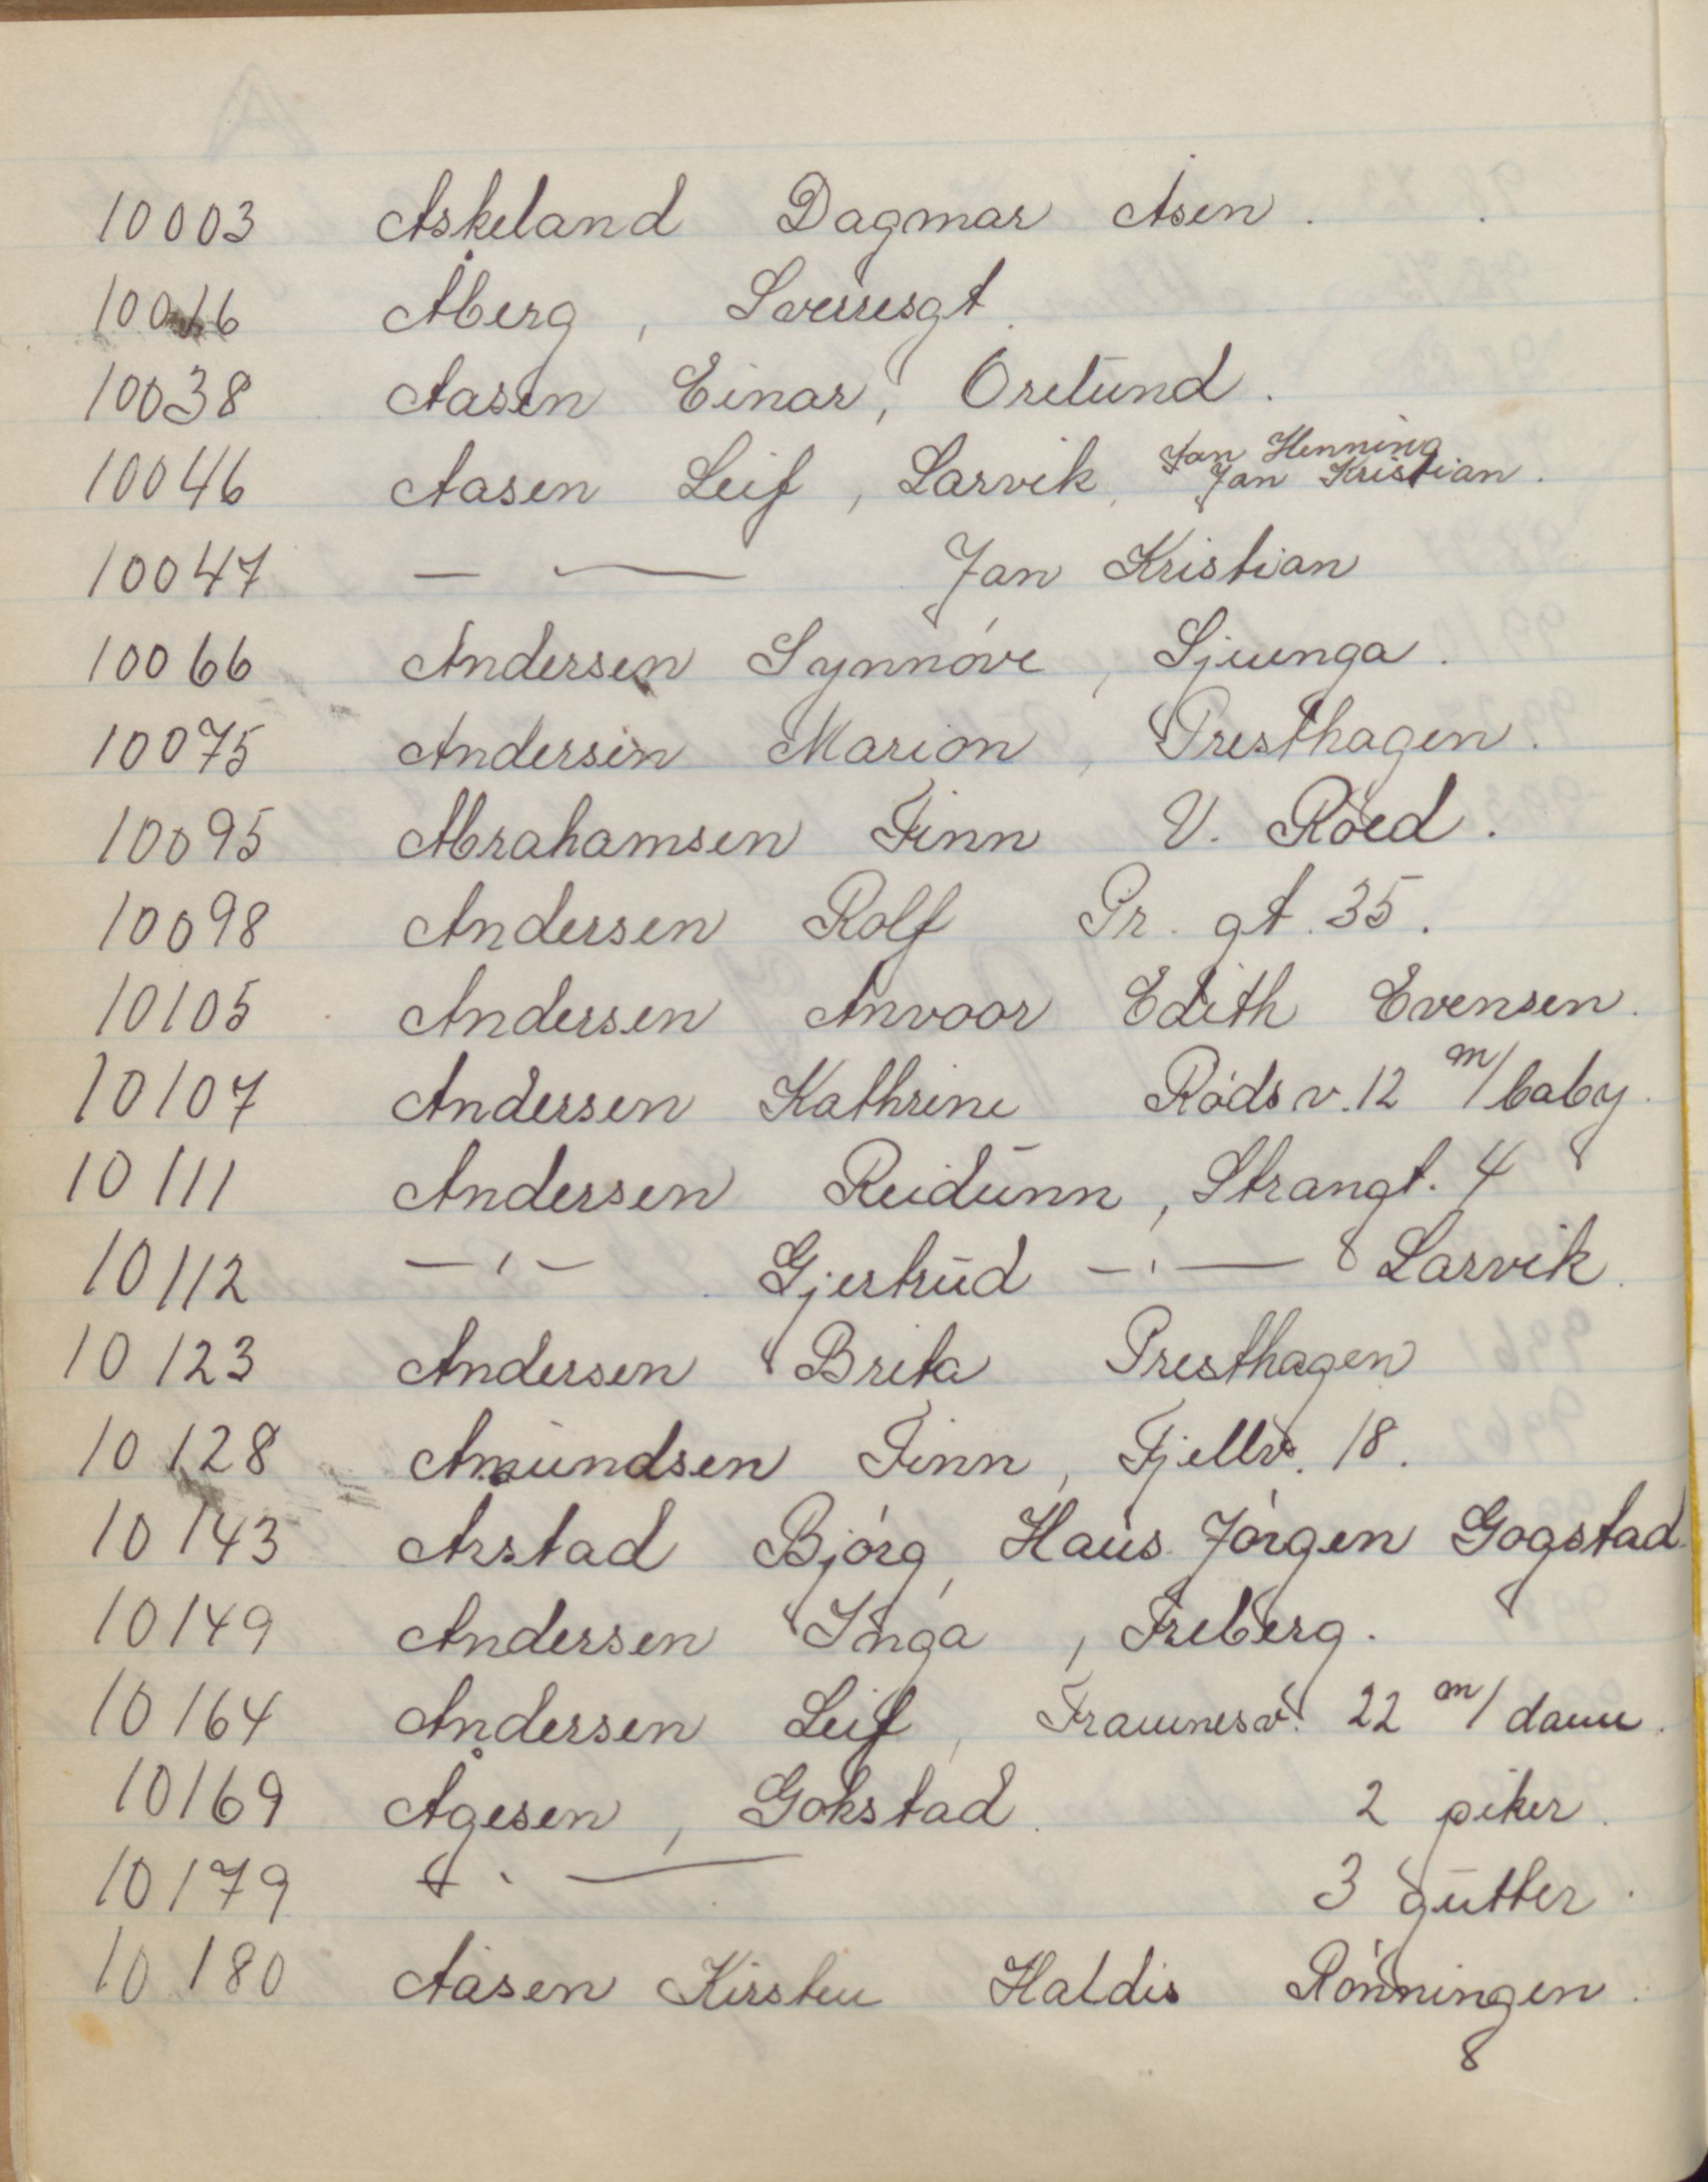 10003 Askeland Dagmar Åsen.
10016 Åberg, Sverresgt.
10038 Aasen Einar, Orelund.
10046 Aasen Leif, Larvik, Jan Henning Jan Kristian.
10047 — — Jan Kristian
10066 Andersen Synnóve, Ljunga.
10075 Andersen Marion, Presthagen.
10095 Abrahamsen Finn V. Róed.
10098 Andersen Rolf Pr. gt. 35.
10105 Andersen Anvoor Edith Evensen.
10107 Andersen Kathrine Ródsv. 12 m/baby.
10111 Andersen Reidunn, Strangt. 4
10112 —ı— Gjertrud —ı— Larvik.
10123 Andersen Brita Presthagen
10128 Amundsen Finn, Fjellv. 18.
10143 Arstad Bjórg, Hans Jórgen Gogstad.
10149 Andersen Inga, Freberg.
10164 Andersen Leif, Framnesv. 22 m/dame.
10169 Ågesen, Gokstad. 2 piker.
10179 — ı — 3 gutter.
10180 Aasen Kirsten Haldis Rónningen.